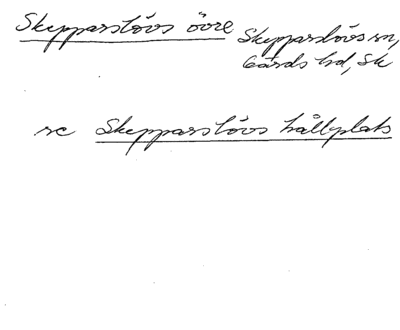 Skepparslövs övre Skepparslövs sn,
Gärds hd, Sk
se Skepparslövs hållplats